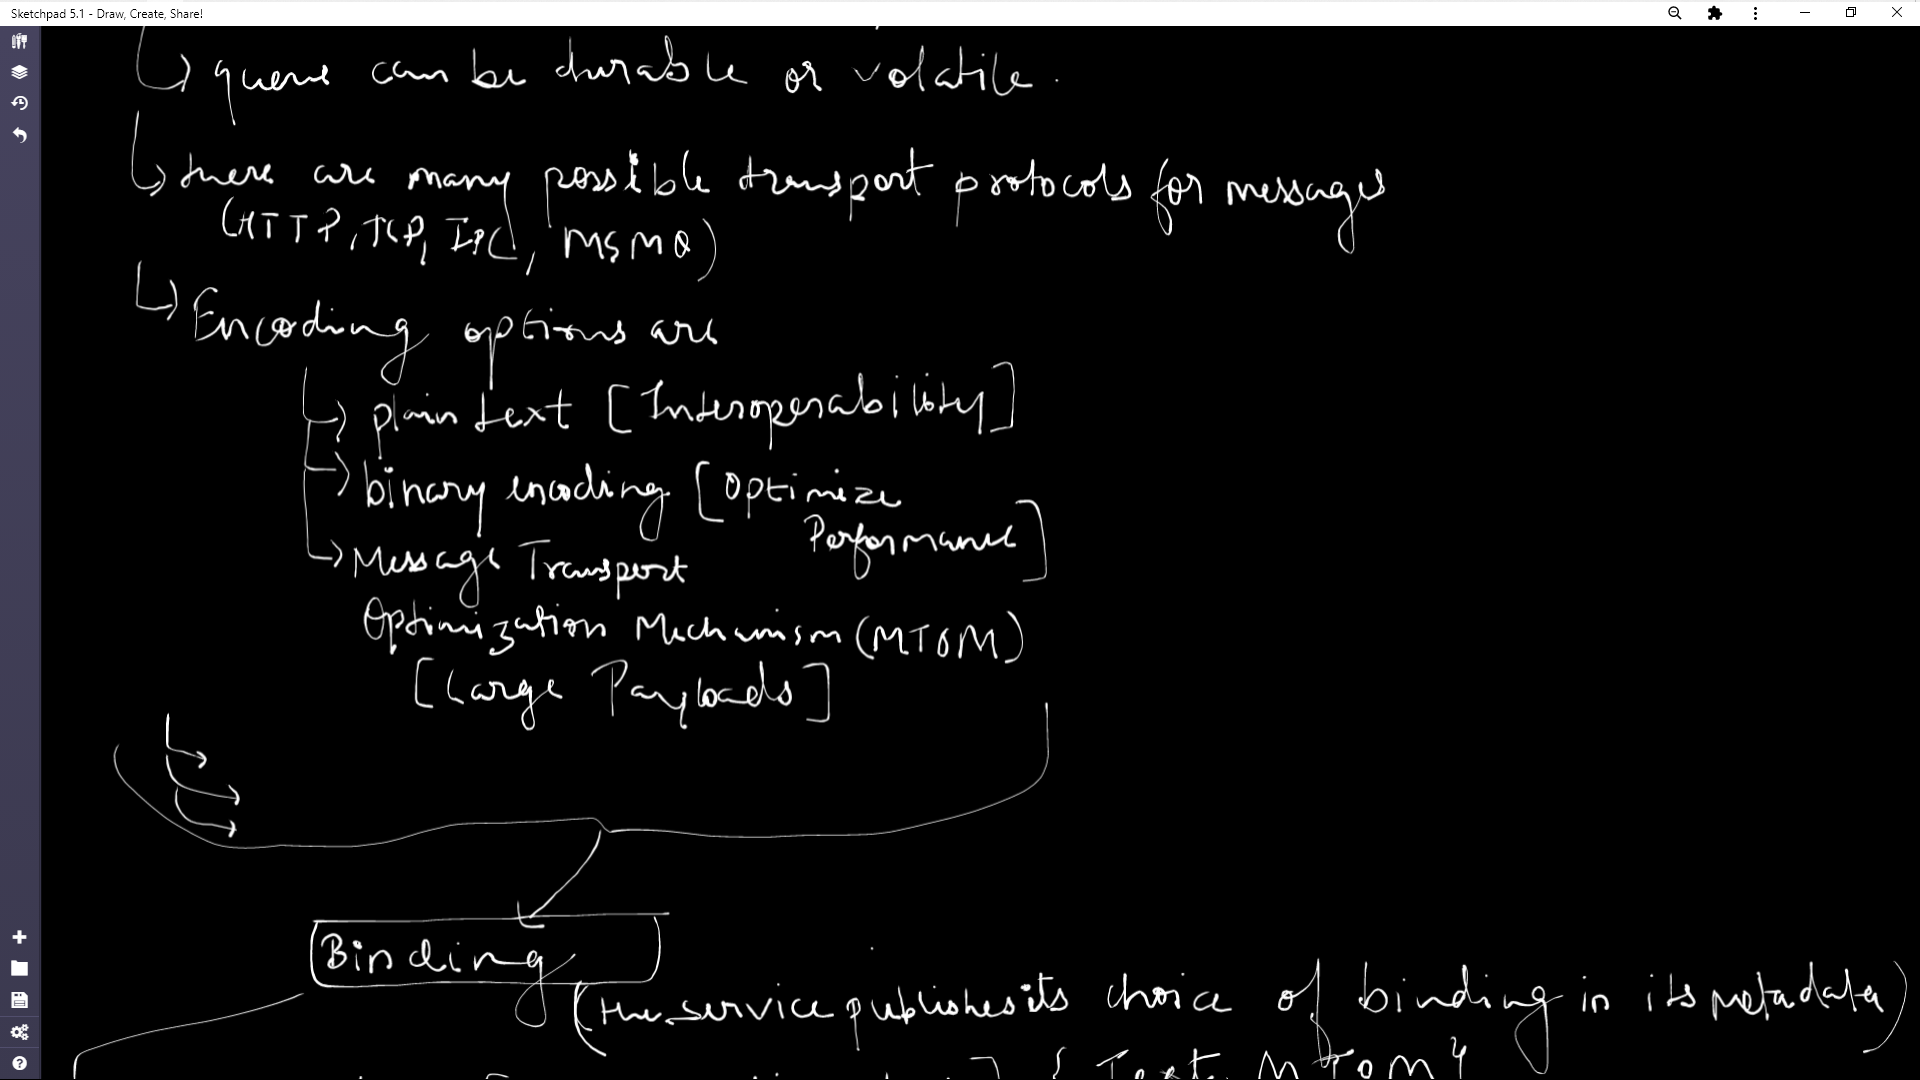 Sketchpad 5.1 - Draw, Create, Share!
queue can be durable or volatile.
there are many possible transport protocols for messages
(HTTP, TCP, IPC, MSMQ)
Encoding options are
plain text [Interoperability]
binary encoding [Optimize
Performance]
Message Transport
Optimization Mechanism (MTOM)
[Large Payloads]
Binding
(the service publishes its choice of binding in its metadata)
{ Text, MTOM }